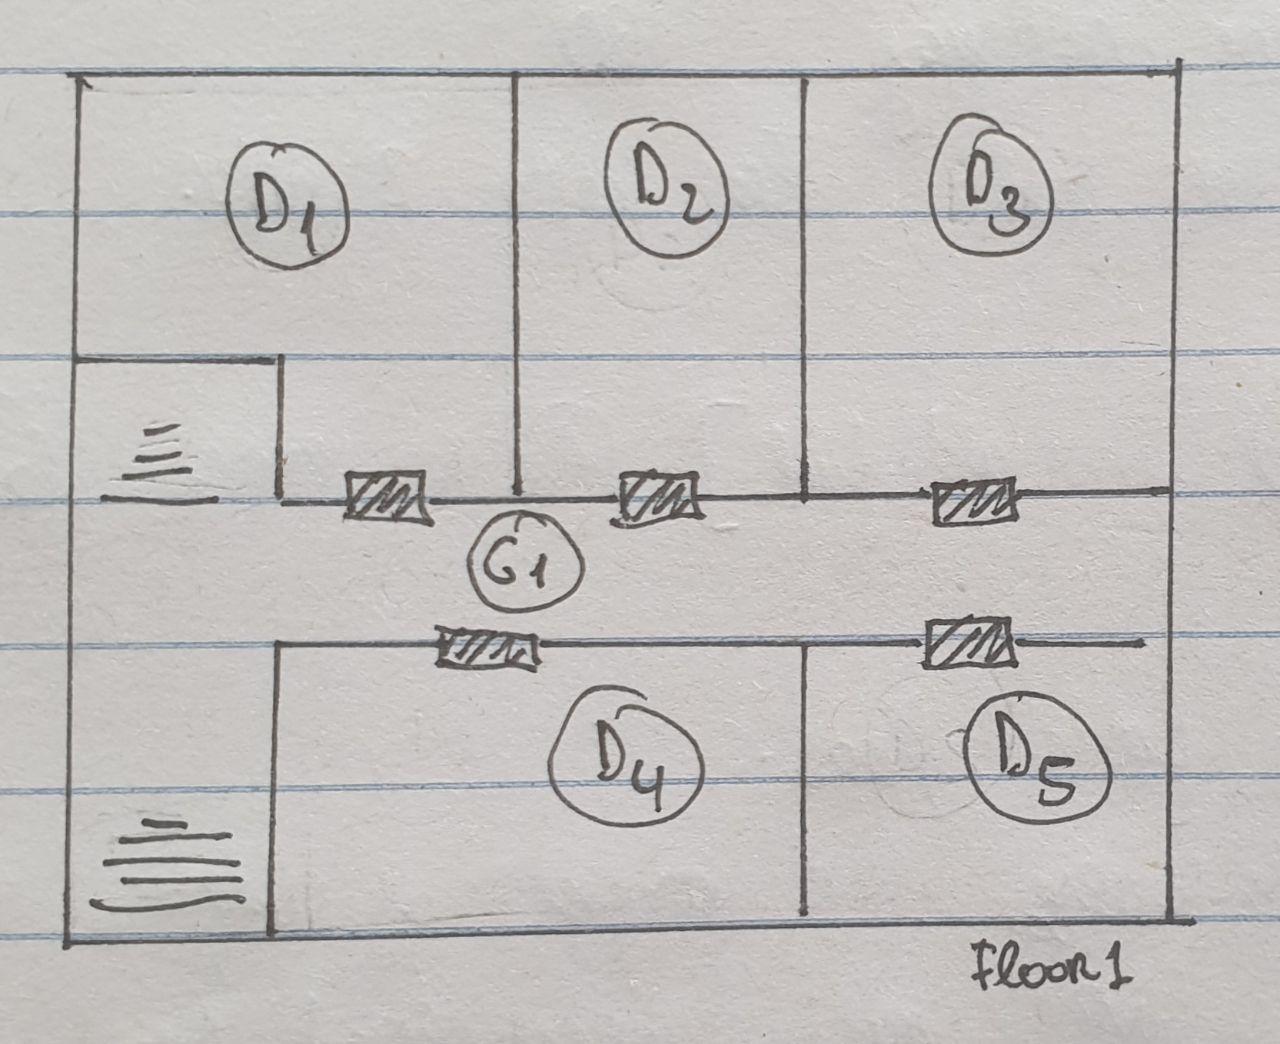 D1
D2
D3
G1
D4
D5
Floor 1